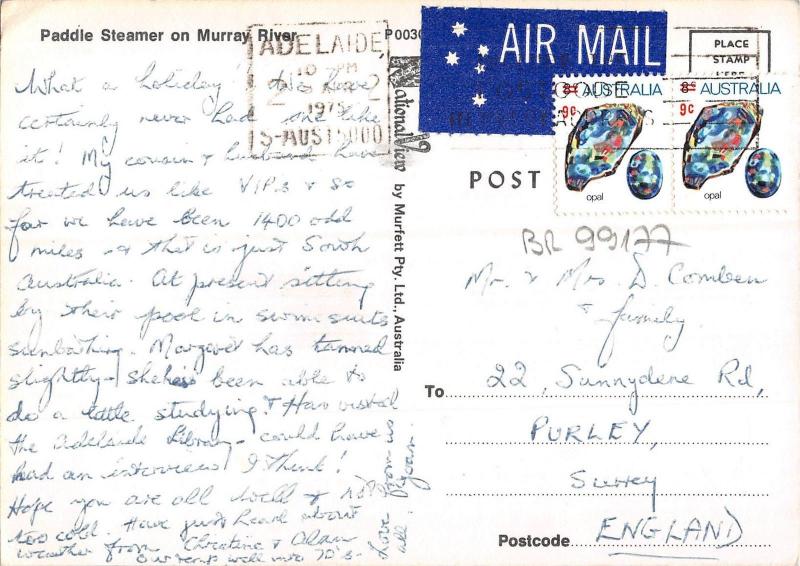 Paddle Steamer on Murray River
What a holiday! We have
certainly never had one like
it! My cousin & husband have
treated us like VIPs & so
far we have been 1400 odd
miles & that is just South
Australia. At present sitting
by their pool in swim suits
sunbathing. Margaret has tanned
slightly - she has been able to
do a little studying & Has visited
the Adelaide Library - could have
had an interview I think!
Hope you are all well & not
too cold. Have just heard about
weather from Christine & Alan
Ours went well into 70's -
Love from us
all. Joan.
National View
by Murfett Pty. Ltd., Australia
P0030
ADELAIDE
10 - PM
1975
S-AUST 5000
AIR MAIL
PLACE
STAMP
HERE
8c AUSTRALIA
9c
opal
8c AUSTRALIA
9c
opal
POST
BR 99177
Mr. & Mrs. D. Comben
& family
To
22, Sunnydene Rd,
PURLEY,
Surrey
Postcode ENGLAND